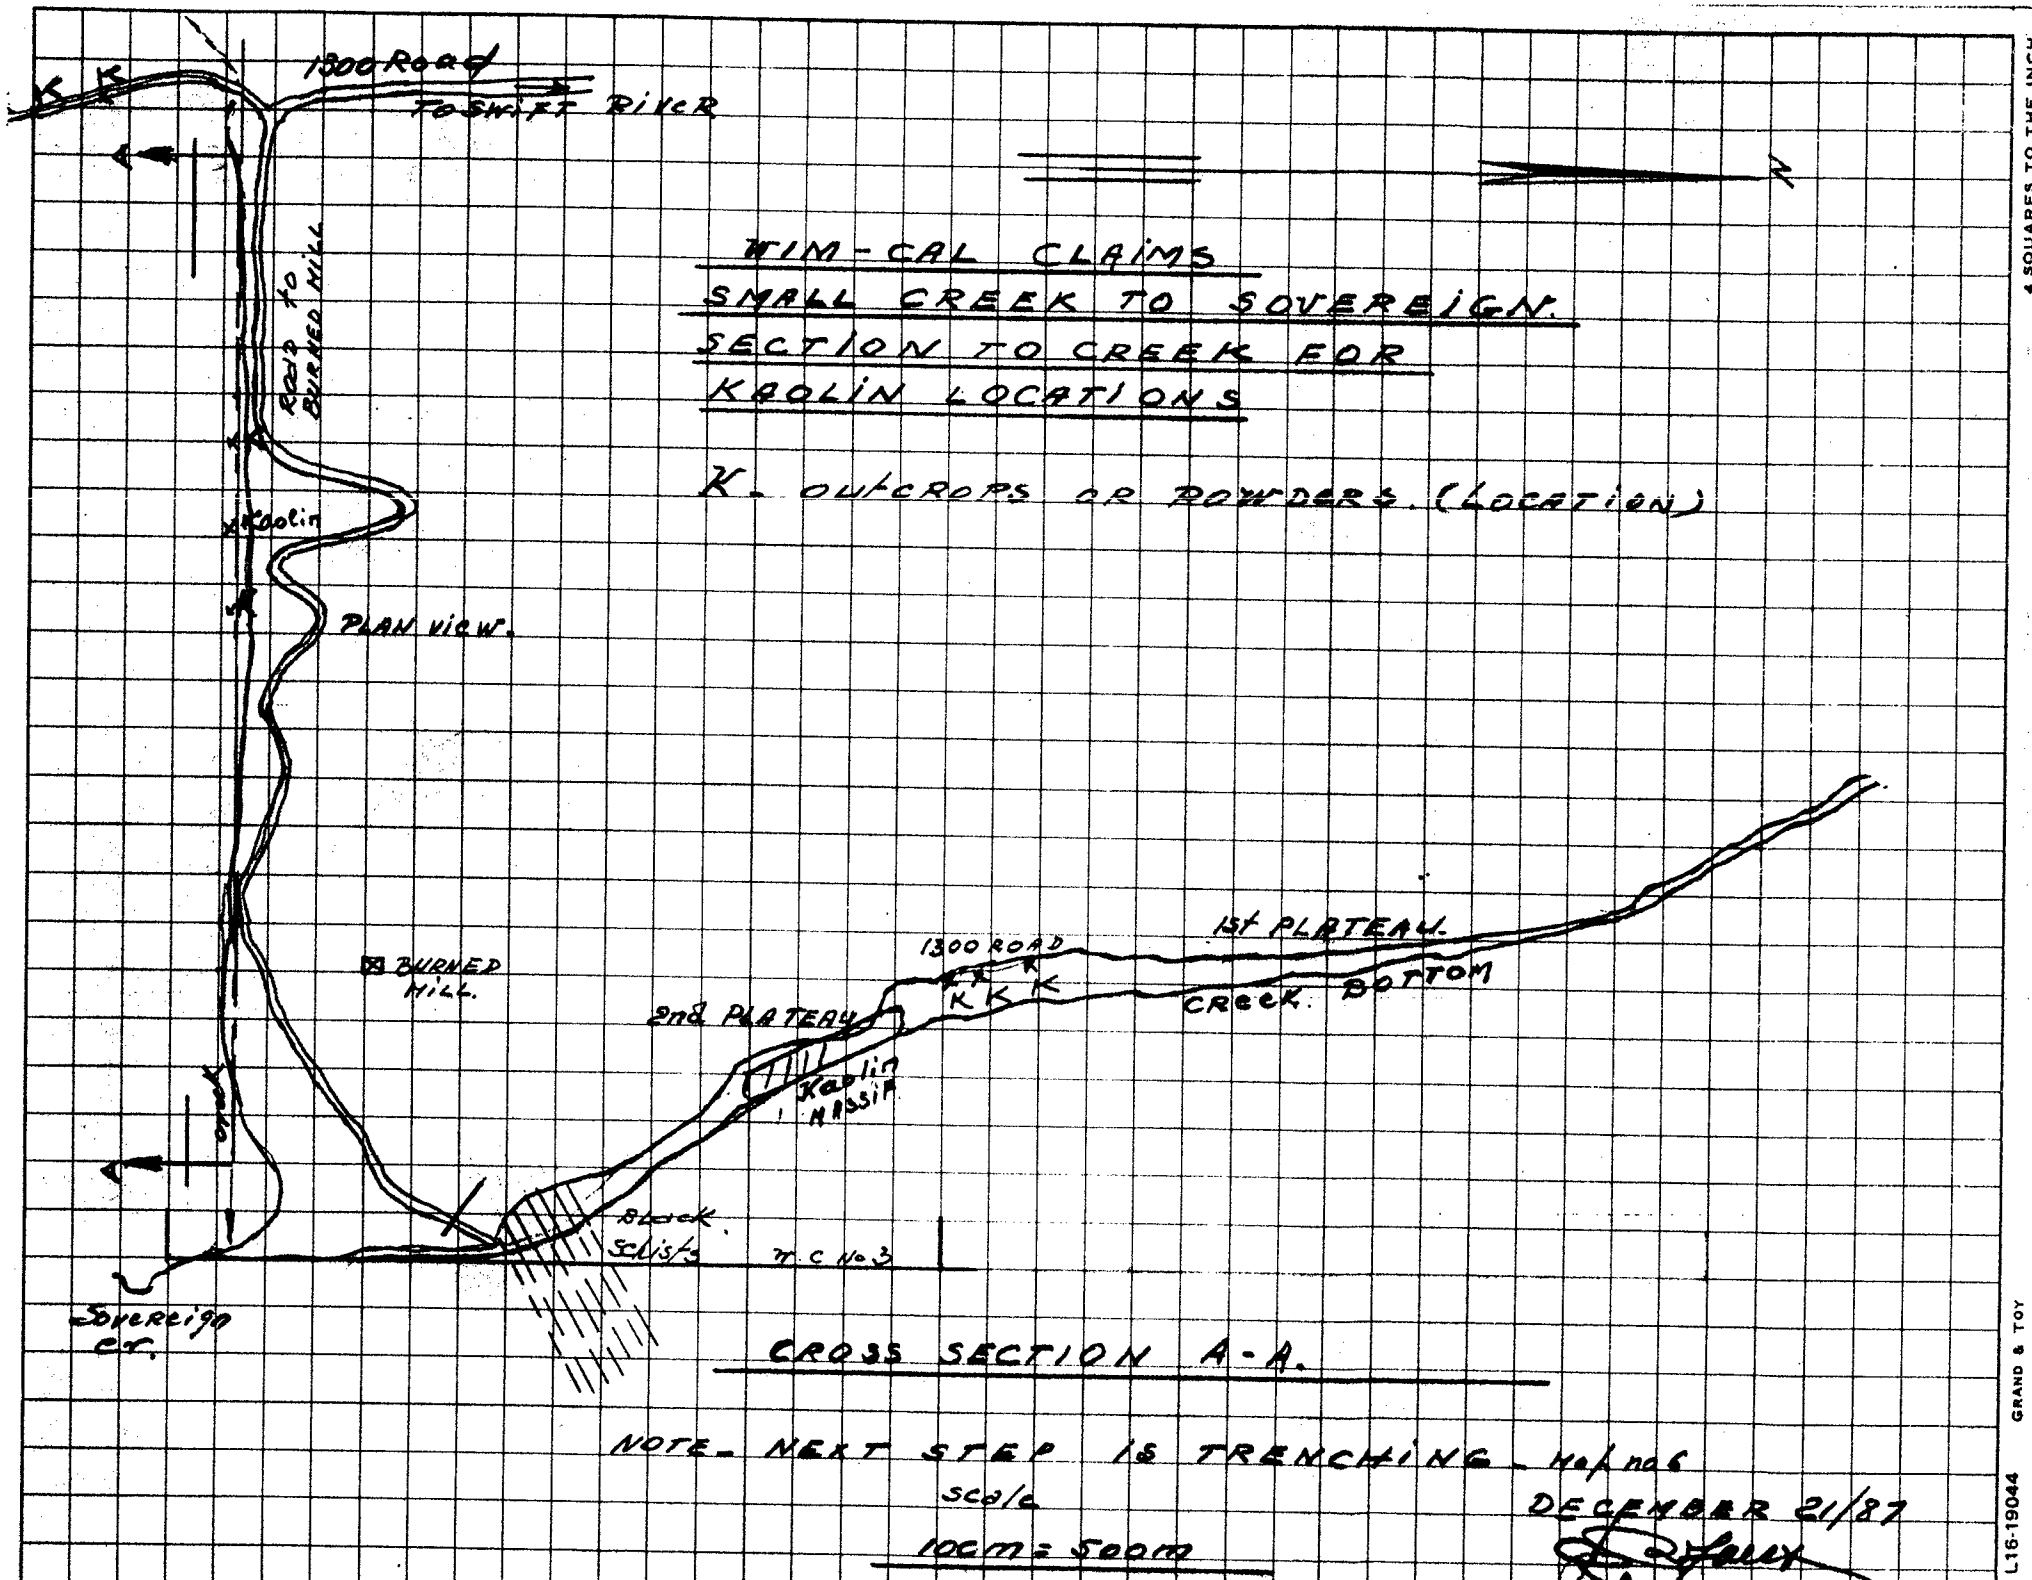 1300 Road
TO SWIFT RIVER
K K
A
N
ROAD to
BURNED MILL
WIM-CAL CLAIMS
SMALL CREEK TO SOVEREIGN.
SECTION TO CREEK FOR
KAOLIN LOCATIONS
K - OUTCROPS OR POWDERS. (LOCATION)
K
Kaolin
K
PLAN VIEW.
BURNED
MILL.
1300 ROAD
1st PLATEAU.
K K K
K K K
CREEK BOTTOM
2nd PLATEAU
Kaolin
MASSIF
creek
A
BLACK
Schists
W.C No 3
Sovereign
cr.
CROSS SECTION A-A.
NOTE - NEXT STEP IS TRENCHING - Map no 6
scale
10cm = 500m
DECEMBER 21/87
4 SQUARES TO THE INCH
GRAND & TOY
L16-19044